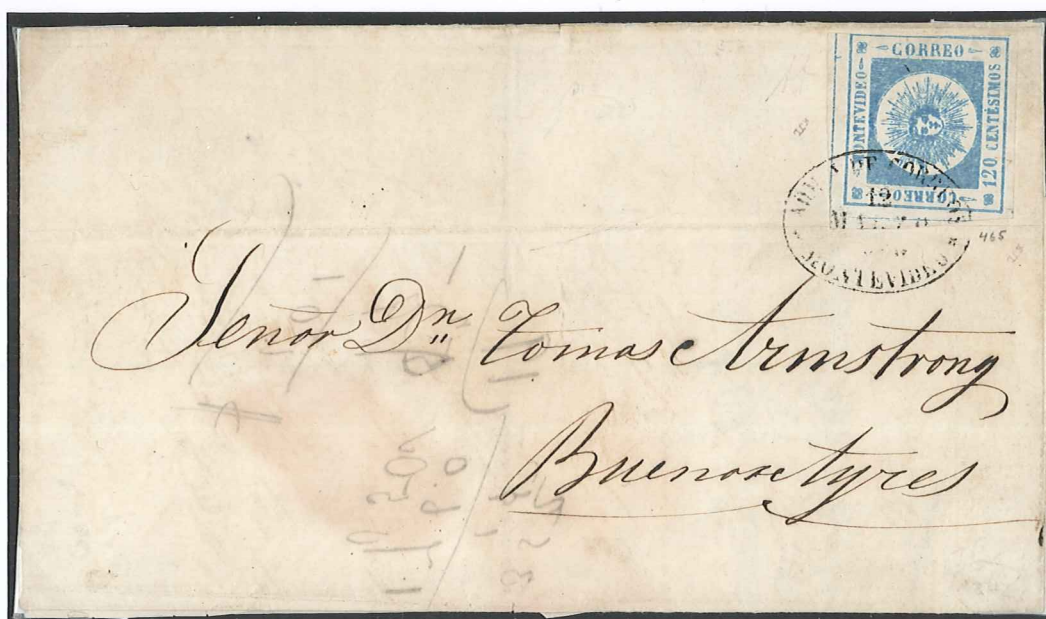 CORREO
MONTEVIDEO
120 CENTÉSIMOS
CORREO
DE CORREOS
12
MONTEVIDEO
465
Señor Dn Tomas Armstrong
Buenos Ayres